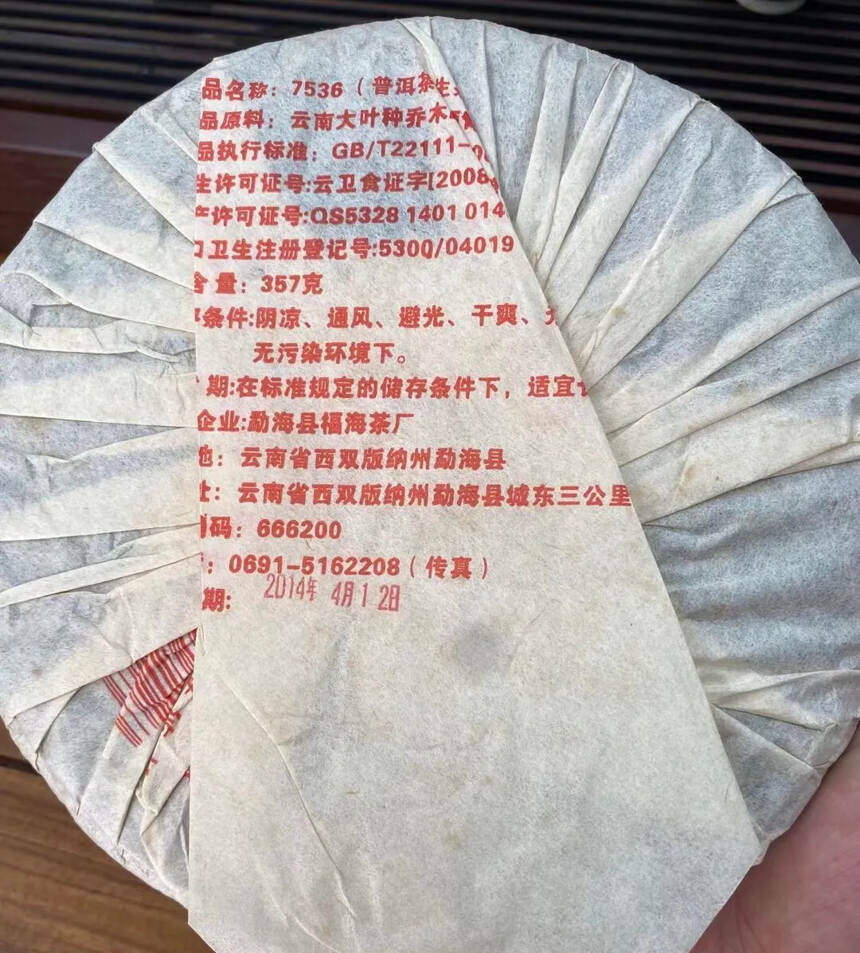 品名称：7536（普洱茶生
品原料：云南大叶种乔木
品执行标准：GB/T22111-
生许可证号:云卫食证字[2008
产许可证号:QS5328 1401 014
口卫生注册登记号:5300/04019
含量：357克
存条件:阴凉、通风、避光、干爽、
无污染环境下。
期:在标准规定的储存条件下，适宜
企业:勐海县福海茶厂
地：云南省西双版纳州勐海县
址：云南省西双版纳州勐海县城东三公里
码：666200
：0691-5162208（传真）
期:
2014年 4月12日